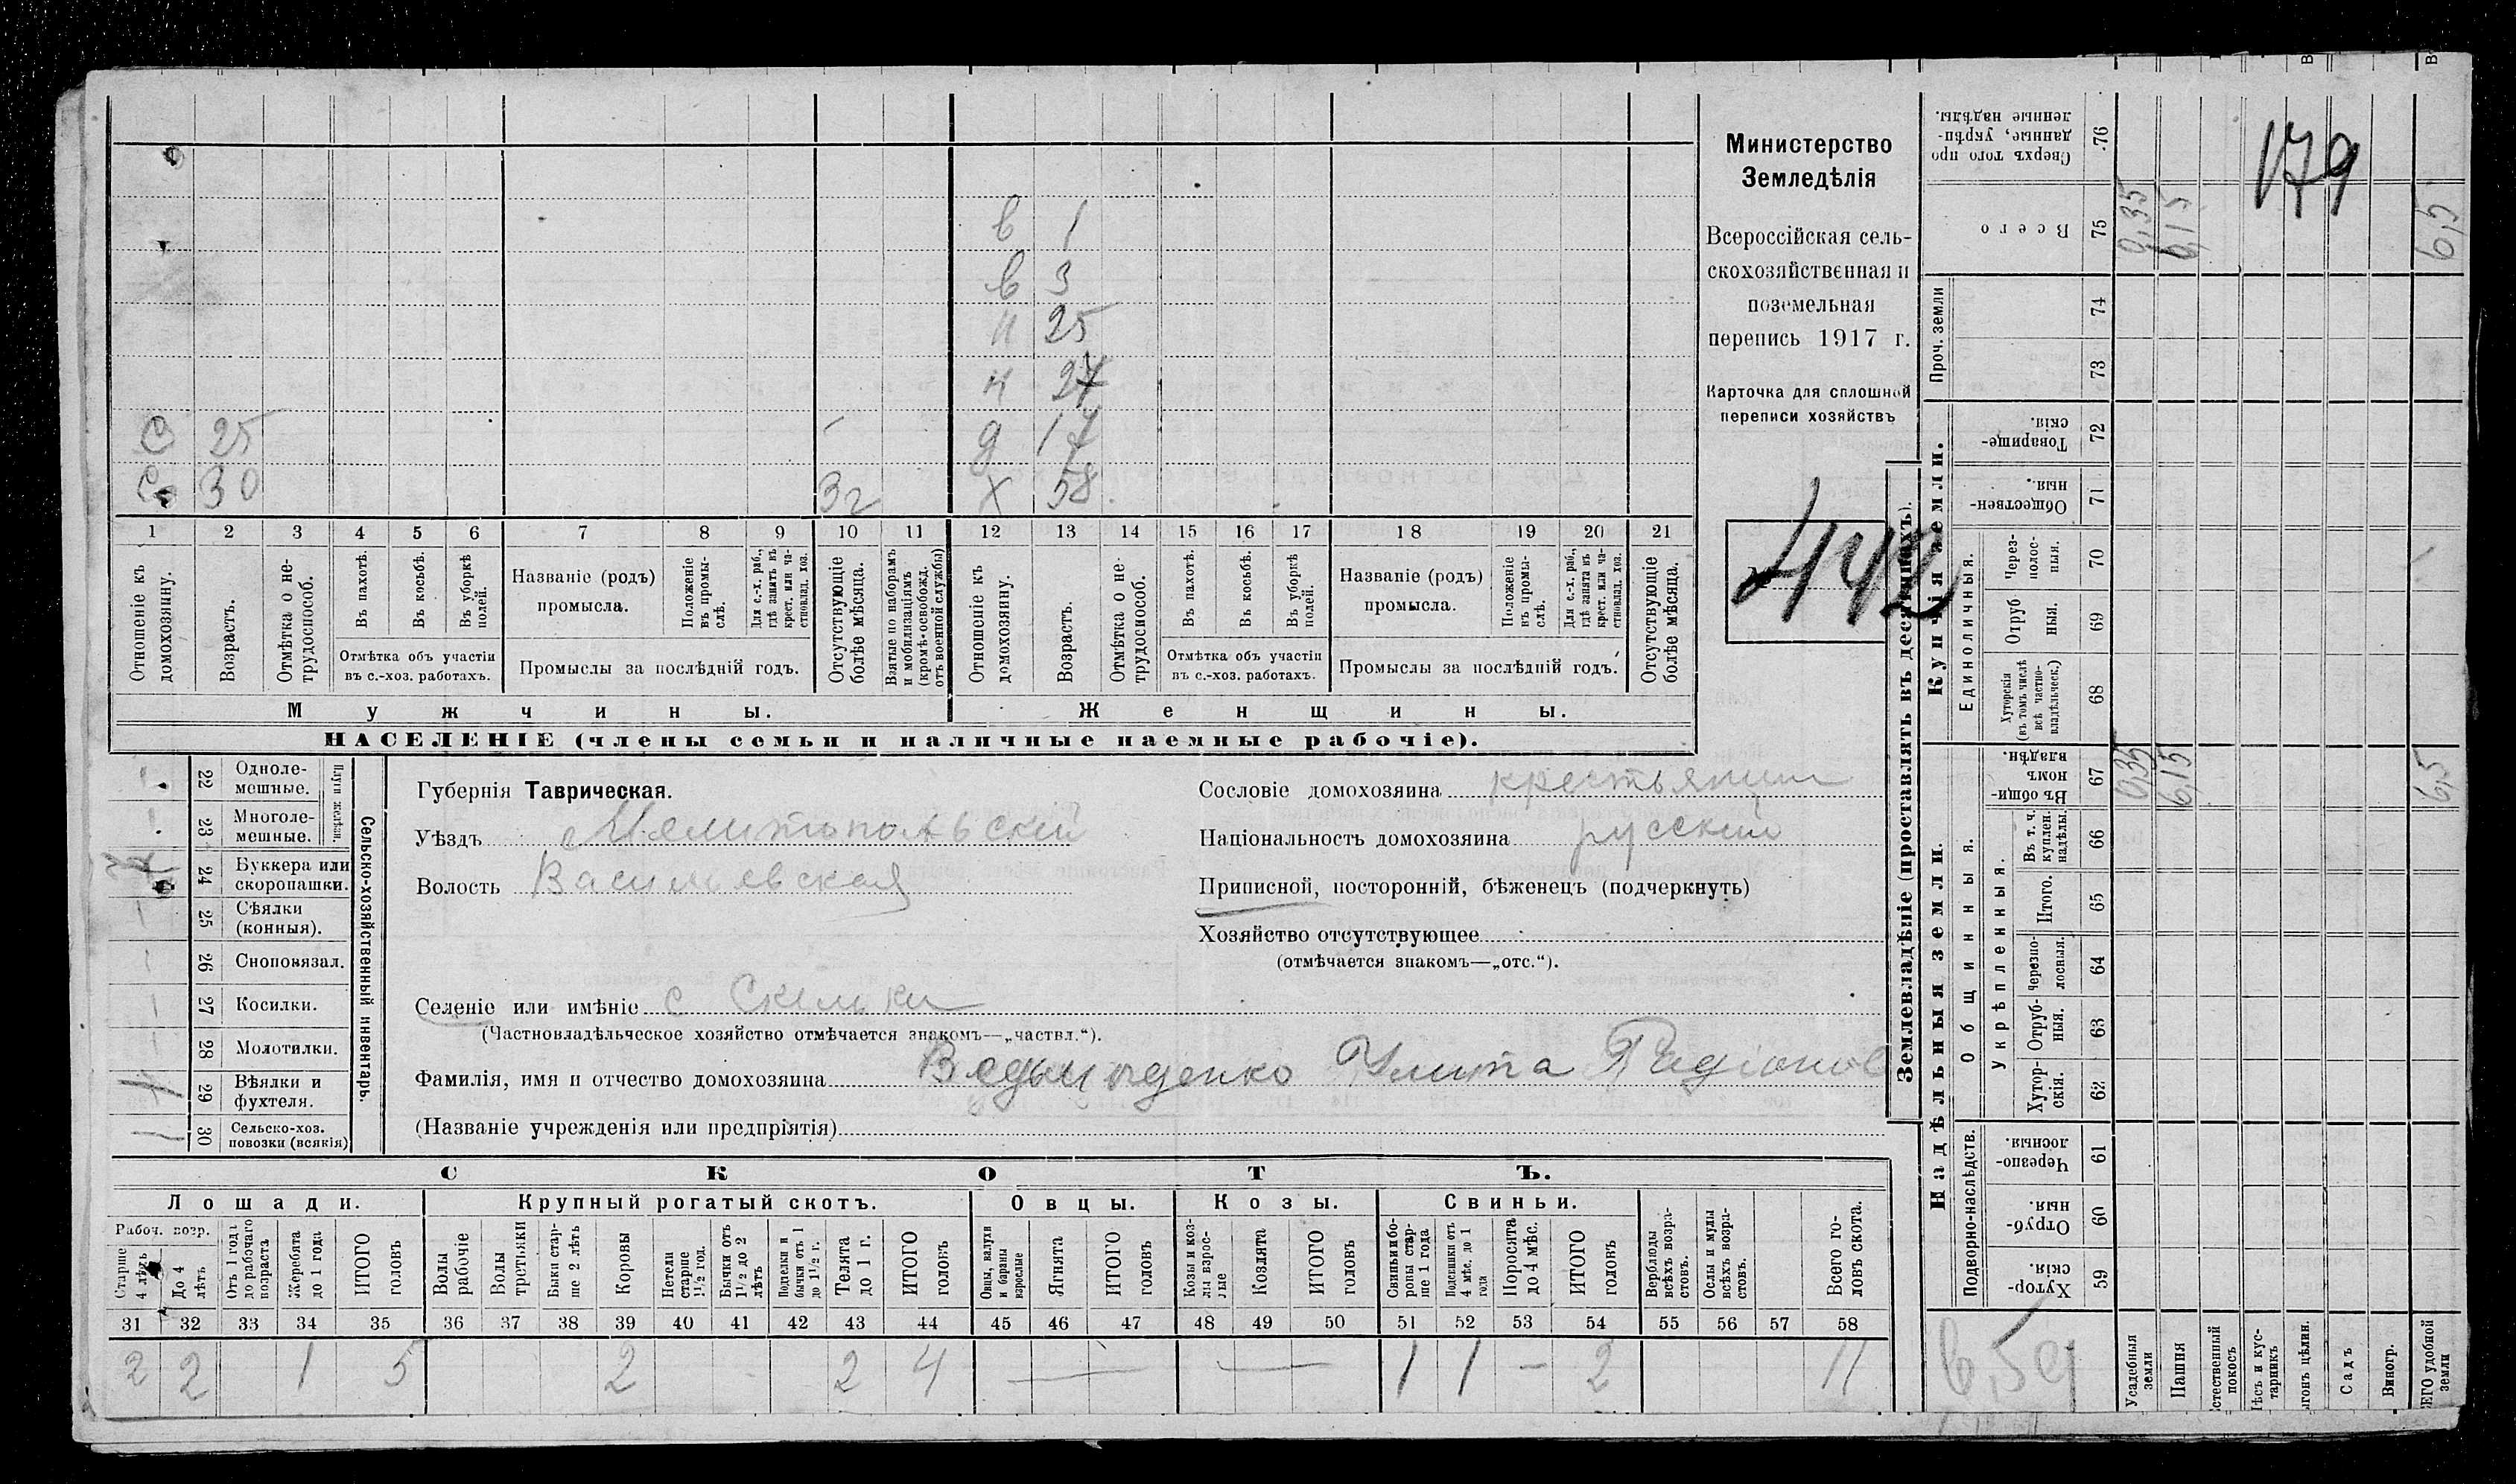 Министерство
Земледѣлія
Всероссійская сель-
скохозяйственная и
поземельная
перепись 1917 г.
Карточка для сплошной
переписи хозяйствъ
№ 442
179
в 1
в 3
н 25
н 27
С 25 – д 17
С 30 3 г х 58
1 2 3 4 5 6 7 8 9 10 11 12 13 14 15 16 17 18 19 20 21
Отношеніе къ домохозяину.
Возрастъ.
Отмѣтка о не-трудоспособ.
Въ пахотѣ.
Въ косьбѣ.
Въ уборкѣ полей.
Отмѣтка объ участіи
въ с.-хоз. работахъ.
Названіе (родъ)
промысла.
Положеніе въ промы-слѣ.
Для с.-х. раб., гдѣ занятъ въ крест. или ча-стновлад. хоз.
Промыслы за послѣдній годъ.
Отсутствующіе болѣе мѣсяца.
Взятые по наборамъ и мобилизаціямъ (кромѣ освобожд. отъ военной службы)
Отношеніе къ домохозяину.
Возрастъ.
Отмѣтка о не-трудоспособ.
Въ пахотѣ.
Въ косьбѣ.
Въ уборкѣ полей.
Отмѣтка объ участіи
въ с.-хоз. работахъ.
Названіе (родъ)
промысла.
Положеніе въ промы-слѣ.
Для с.-х. раб., гдѣ занята въ крест. или ча-стновлад. хоз.
Промыслы за послѣдній годъ.
Отсутствующіе болѣе мѣсяца.
Мужчины.
Женщины.
НАСЕЛЕНІЕ (члены семьи и наличные наемные рабочіе).
22 Одноле-мешные.
23 Многоле-мешные.
Плуги желѣзн.
24 Буккера или скоропашки.
25 Сѣялки (конныя).
26 Сноповязал.
27 Косилки.
28 Молотилки.
29 Вѣялки и фухтеля.
30 Сельско-хоз. повозки (всякія)
Сельско-хозяйственный инвентарь.
Губернія Таврическая.
Уѣздъ Мелитопольскій
Волость Васильевская
Сословіе домохозяина крестьянин
Національность домохозяина русский
Приписной, посторонній, бѣженецъ (подчеркнуть)
Хозяйство отсутствующее
(отмѣчается знакомъ—„отс.“).
Селеніе или имѣніе с Скельки
(Частновладѣльческое хозяйство отмѣчается знакомъ—„частвл.“).
Фамилія, имя и отчество домохозяина Улита Радіонов
(Названіе учрежденія или предпріятія)
СКОТЪ.
Лошади.
Крупный рогатый скотъ.
Овцы.
Козы.
Свиньи.
Рабоч. возр.
Старше 4 лѣтъ
До 4 лѣтъ
Отъ 1 года до рабочаго возраста
Жеребята до 1 года
ИТОГО головъ
Волы рабочіе
Волы третьяки
Быки стар-ше 2 лѣтъ
Коровы
Нетели старше 1½ год.
Бычки отъ 1½ до 2 лѣтъ
Подтелки и бычки отъ 1 до 1½ г.
Телята до 1 г.
ИТОГО головъ
Овцы, валухи и бараны взрослые
Ягнята
ИТОГО головъ
Козы и коз-лы взрос-лые
Козлята
ИТОГО головъ
Свиньи и бо-ровы стар-ше 1 года
Подсвинки отъ 4 мѣс. до 1 года
Поросята до 4 мѣс.
ИТОГО головъ
Верблюды всѣхъ возра-стовъ.
Ослы и мулы всѣхъ возра-стовъ.
Всего го-ловъ скота.
31 32 33 34 35 36 37 38 39 40 41 42 43 44 45 46 47 48 49 50 51 52 53 54 55 56 57 58
2 2 1 5 2 2 4 — — 1 1 – 2 11
Землевладѣніе (проставлять въ десятинахъ).
Купчія земли.
Надѣльныя земли.
76 Сверхъ того про-данные, укрѣп-ленные надѣлы.
75 Всего 0,35 6,15 6,5
Проч. земли
74
73
72 Товарище-скія.
71 Обществен-ныя.
Единоличныя.
70 Через-полос-ныя.
69 Отруб-ныя.
68 Хуторскія (въ томъ числѣ всѣ частно-владѣльческ.)
Общинныя.
67 Въ общин-номъ владѣн. 0,35 6,15 6,5
Укрѣпленныя.
66 Въ т. ч. куплен. надѣлы.
65 Итого.
64 Черезпо-лосныя.
63 Отруб-ныя.
62 Хутор-скія.
Подворно-наслѣдств.
61 Черезпо-лосныя.
60 Отруб-ныя
59 Хутор-скія.
6,5 д
Усадебныя земли
Пашня
стественный покосъ
ѣсъ и кус-тарникъ
ыгонъ цѣлин.
Садъ
Виногр.
ЕГО удобной земли